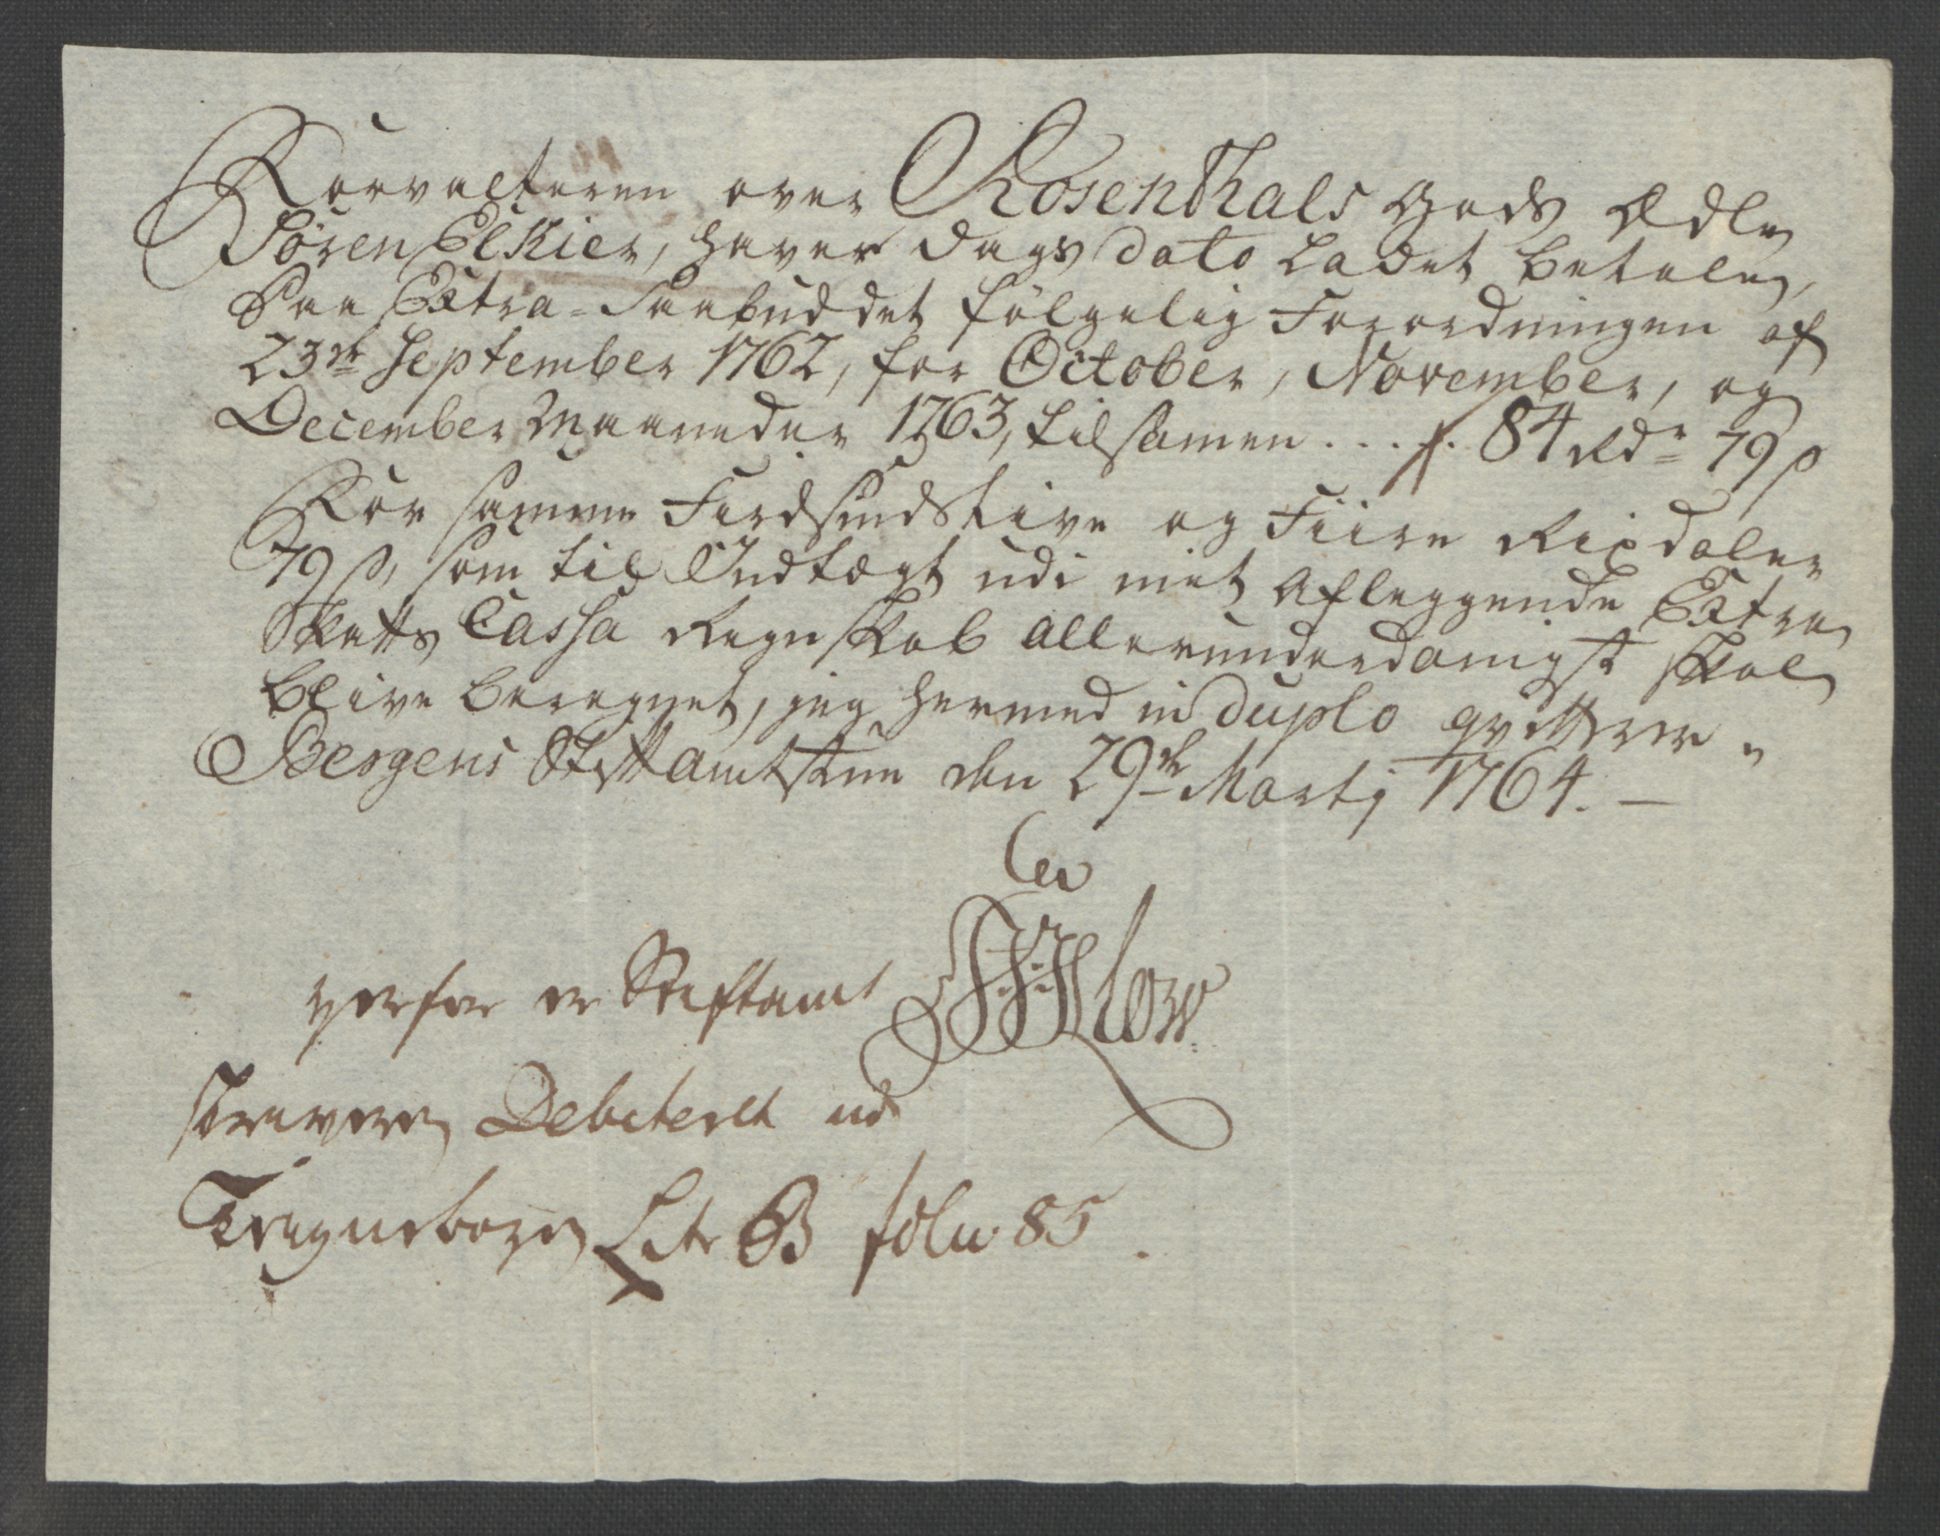 Forvalteren over Rosenthals Gods Ædle
Sören Elkier, haver Dags dato Ladet betale,
Paa Extra-Paabuddet fölgelig Forordningen af
23de September 1762, for October, November, og
December Maaneder 1763, tilsamen .... 84 Rdr 79 ß
For samme Fiirdsindstive og Fiire Rixdaler
79 ß, som til Indtægt udi mit aflæggende Extra
Skatts Cassa Regnskab allerunderdanigst skal
blive beregnet, jeg hermed in duplo qvitterer.
Bergens Stiftamtstue den 29de Martj 1764. —
herfor er Stiftamt
skriveren Debiteret ud
Tegnebogen Litr B folio 85.